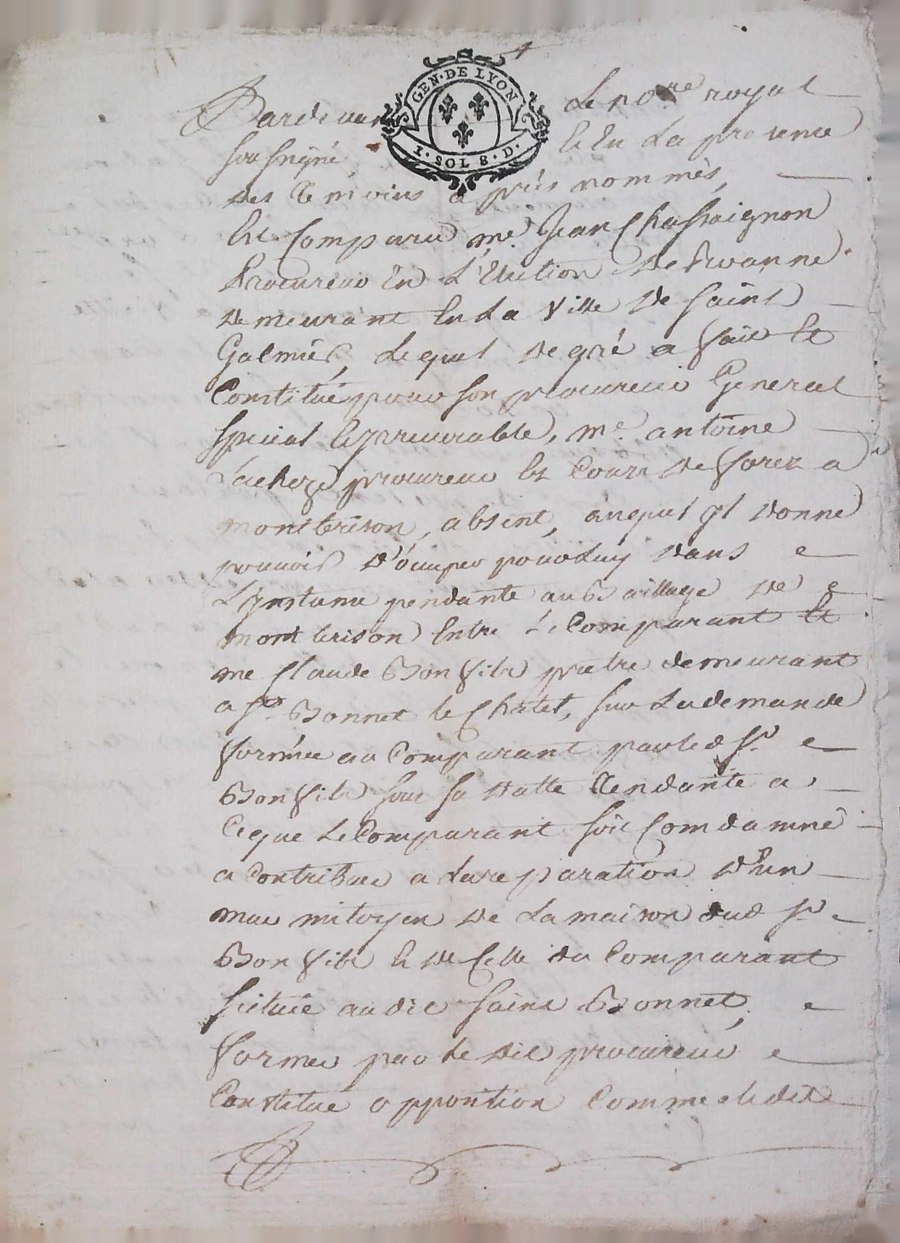 GEN·DE LYON
1·SOL 8·D·
Pardevant Le no.re royal
soussigné Et En La presence
Des temoins a près nommés,
Est Comparu me. Jean Chassaignon
Procureur En L'Election De Roanne
Demeurant En La Ville De Saint
Galmier Lequel De gré a fait Et
Constitué pour son procureur General
special Et irrevocable, me. antoine
procureur Es Cours De forez a
montbrison, absent, auquel Il Donne
pouvoir D'occuper pour Luy Dans
L'Instance pendante au Baillage De
montbrison Entre Le Comparant Et
me Claude Bonfils pretre demeurant
a St. Bonnet le Chatel, sur La demande
formée au Comparant par led. Sr.
Bonfils sous sa Datte tendante a
Ce que Le Comparant soit Comdamné
a Contribuer a La reparation D'un
mur mitoyen De La maison dud. Sr.
Bonfils Et De Celle du Comparant
scituée au dit Saint Bonnet,
former par Le Dit procureur
Constitué oppontion Comme